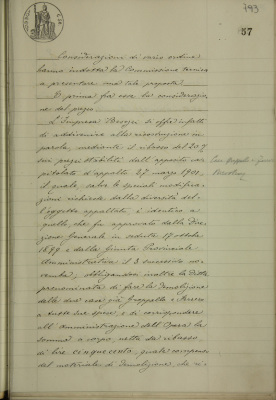 793
57
Considerazioni di vario ordine
hanno indotto la Commissione tecnica
a presentare una tale proposta.
E prima fra esse la considerazio
ne del prezzo.
L'Impresa si offrì infatti
di addivenire alla ricostruzione in
parola, mediante il ribasso del 20 %
sui prezzi stabiliti dall'apposito ca
pitolato d'appalto 27 marzo 1901,
il quale, salvo le speciali modifica
zioni richieste dalla diversità del
l'oggetto appaltato, è identico a
quello che fu approvato dalla Dire
zione Generale in seduta 17 ottobre
1899 e dalla Giunta Provinciale
Amministrativa il 3 successivo no
vembre, obbligandosi inoltre la Ditta
prenominata di fare la demolizione
delle due case già Groppello e
a tutte sue spese, e di corrispondere
all'Amministrazione dell'Opera la
somma a corpo, netta da ribasso
di lire cinquecento, quale compenso
del materiale di demolizione, che ri-
Case Groppello e